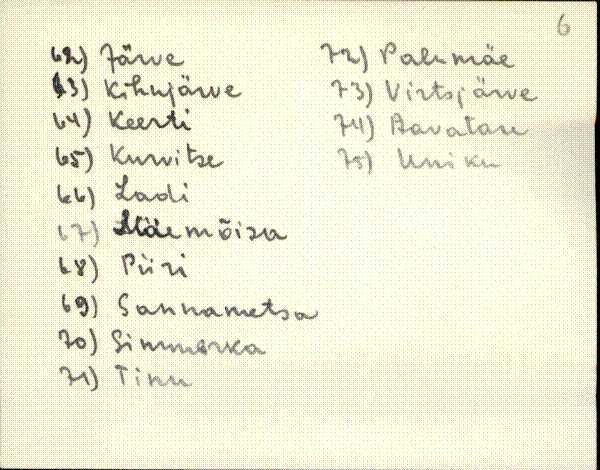 6
62) Järve
63) Kihujärve
64) Keerti
65) Kurvitse
66) Ladi
67) Mäemõisa
68) Piiri
69) Sannametsa
70) Simmerka
71) Tinu
72) Palumäe
73) Virtsjärve
74) Aavatare
75) Uniku